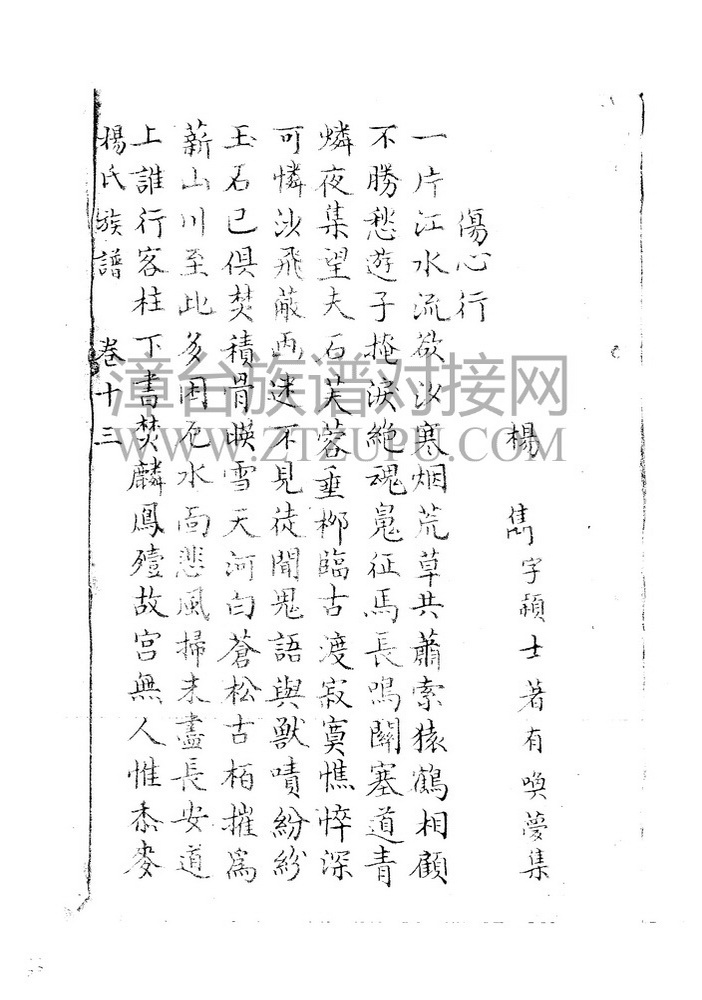 楊 雋字穎士著有喚夢集
傷心行
一片江水流欲汐寒烟荒草共蕭索猿鶴相顧
不勝愁遊子掩淚絶魂鬼征馬長鳴關塞道青
燐夜集望夫石芙蓉垂栁臨古渡寂寞憔悴深
可憐沙飛蔽西迷不見徒聞鬼語與獸嘖紛紛
玉石已俱焚積骨暎雪天河白蒼松古栢摧爲
薪山川至此多困厄水面悲風掃未盡長安道
上誰行客柱下書焚麟鳳殪故宫無人惟黍麥
楊氏族譜 卷十三
漳台族谱对接网
WWW.ZTZUPU.COM